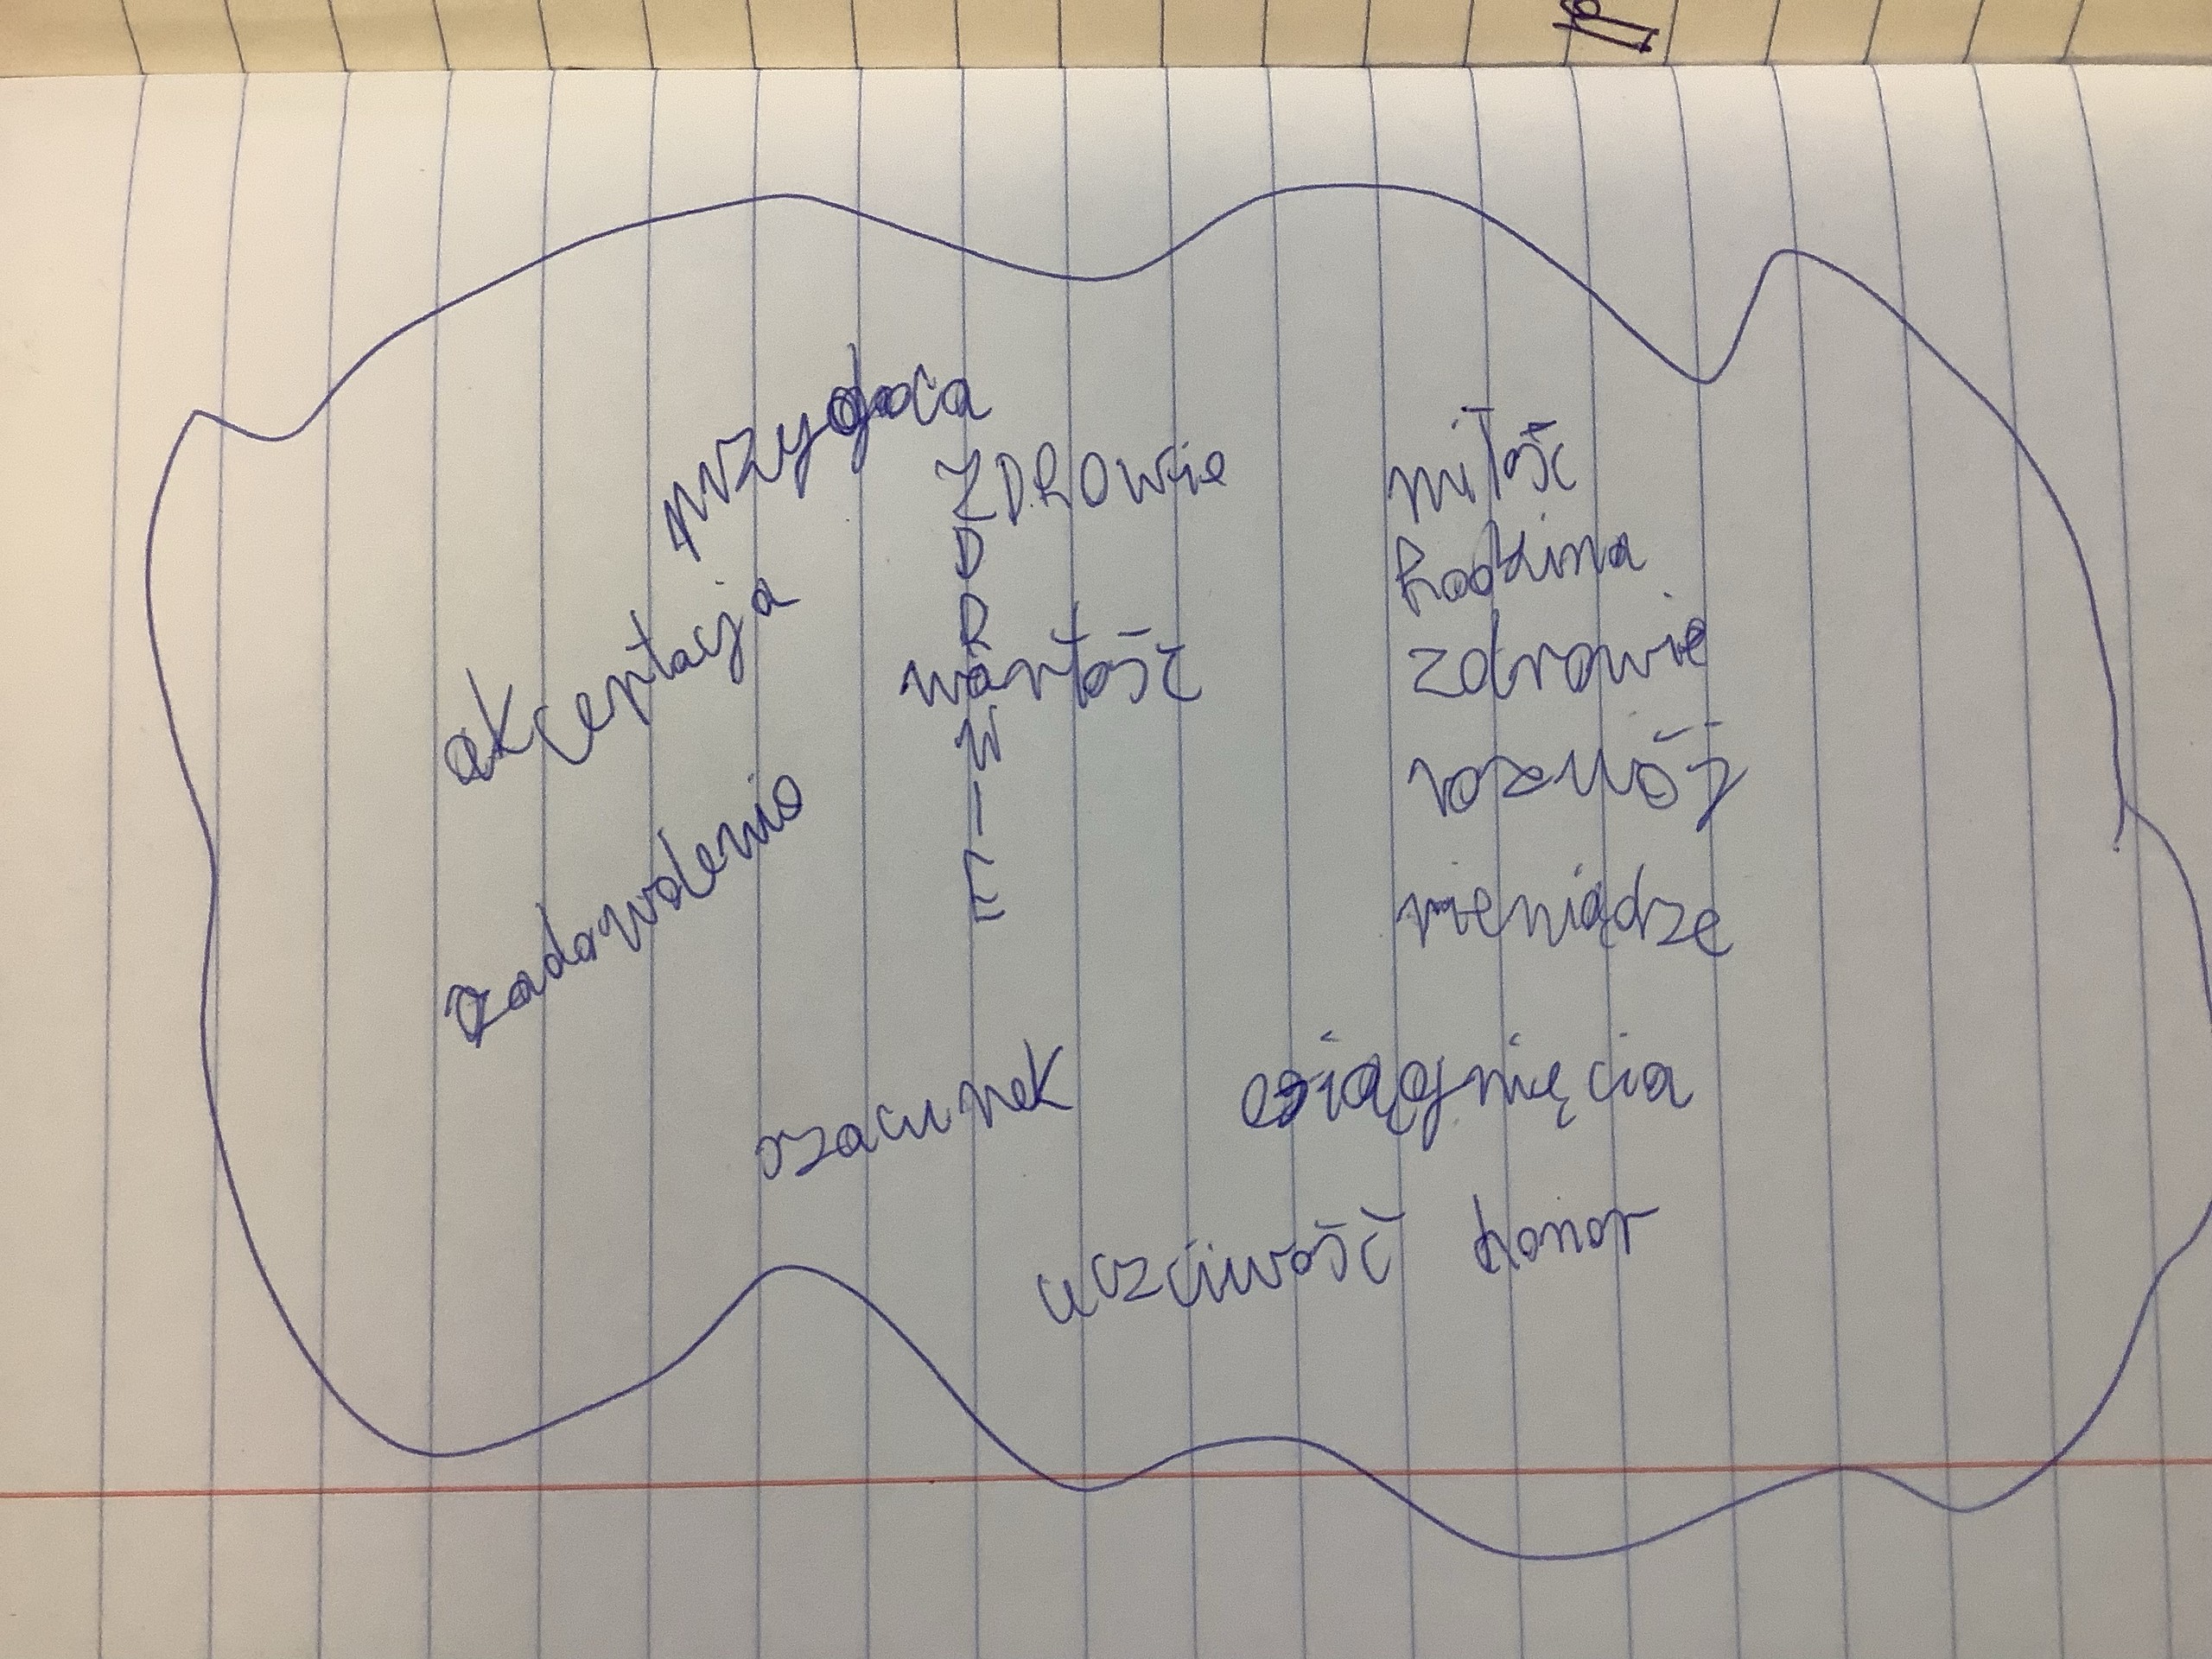 przygoda
ZDROwie
miłość
Rodzina
akceptacja
D
R
wartość
zdrowie
W
I
E
rozwój
zadowolenie
pieniądze
szacunek
osiągnięcia
uczciwość honor